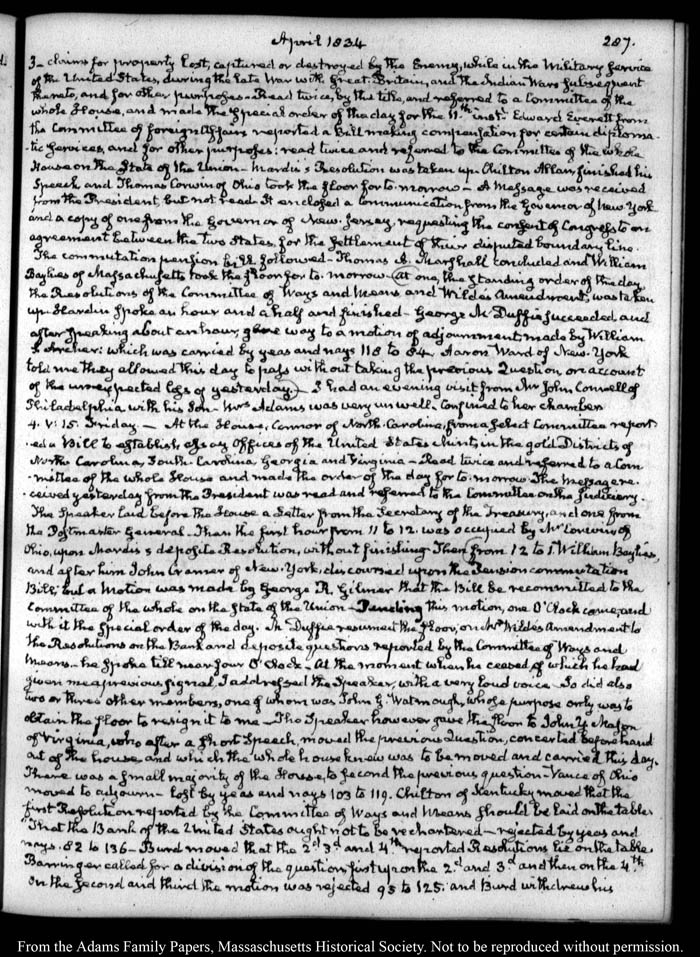 April 1834 287.
3- claims for property lost, captured or destroyed by the Enemy, while in the Military Service
of the United States, during the late War with Great-Britain, and the Indian Wars subsequent
thereto, and for other purposes - Read twice, by the title, and referred to a Committee of the
whole House, and made the special order of the day for the 11th inst. Edward Everett from
the Committee of foreign Affairs reported a Bill making compensation for certain diploma-
-tic Services, and for other purposes: read twice and referred to the Committee of the whole
House on the State of the Union - Mardis's Resolution was taken up. Chilton Allan finished his
Speech and Thomas Corwin of Ohio took the floor for to-morrow - A Message was received
from the President but not read. It enclosed a communication from the Governor of New York
and a copy of one from the Governor of New Jersey, requesting the consent of Congress to an
agreement between the two States, for the settlement of their disputed boundary line.
The commutation pension Bill followed - Thomas A. Marshall concluded and William
Baylies of Massachusetts took the floor for to-morrow. At one, the standing order of the day
the Resolutions of the Committee of Ways and Means and Wilde's Amendment, was taken
up. Hardin spoke an hour and a half and finished - George McDuffie succeeded and
after speaking about an hour, gave way to a motion of adjournment made by William
S. Archer: which was carried by yeas and nays 118 to 84. Aaron Ward of New-York
told me they allowed this day to pass without taking the previous Question, on account
of the unexpected loss of yesterday - I had an evening visit from Mr John Connell of
Philadelphia with his Son - Mrs Adams was very unwell. Confined to her chamber
4. V: 15. Friday. - At the House, Connor of North-Carolina, from a select Committee report-
-ed a Bill to establish assay Offices of the United States Mint, in the gold Districts of
North Carolina, South-Carolina, Georgia and Virginia - Read twice and referred to a Com-
-mittee of the whole House and made the order of the day for to-morrow. The Message re-
-ceived yesterday from the President was read and referred to the Committee on the Judiciary.
The Speaker laid before the House a Letter from the Secretary of the Treasury, and one from
the Postmaster General - Then the first hour from 11 to 12. was occupied by Mr Corwin of
Ohio, upon Mardis's deposite Resolution, without finishing. Then from 12 to 1. William Baylies,
and after him John Cramer of New-York, discoursed upon the Pension commutation
Bill; but a Motion was made by George R. Gilmer that the Bill be recommitted to the
Committee of the whole on the State of the Union - Pending this motion, one O'Clock came, and
with it the Special order of the day. McDuffie resumed the floor, on Mr Wilde's Amendment to
the Resolutions on the Bank and deposite questions reported by the Committee of Ways and
Means. he spoke till near four O'Clock - At the moment when he ceased, of which he had
given me a previous signal, I addressed the Speaker, with a very loud voice - So did also
two or three other members, one of whom was John G. Watmough, whose purpose only was to
obtain the floor to resign it to me - The Speaker however gave the floor to John Y Mason
of Virginia, who after a short Speech, moved the previous Question, concerted beforehand
out of the house, and which the whole house knew was to be moved and carried this day.
There was a small majority of the House, to second the previous question - Vance of Ohio
moved to adjourn - lost by yeas and nays 103 to 119. Chilton of Kentucky moved that the
first Resolution reported by the Committee of Ways and Means should be laid on the table.
That the Bank of the United States ought not to be rechartered - rejected by yeas and
nays. 82 to 136 - Burd moved that the 2d 3d and 4th reported Resolutions lie on the table
Barringer called for a division of the question, first upon the 2d and 3d and then on the 4th.
On the second and third the motion was rejected 95 to 125: and Burd withdrew his
From the Adams Family Papers, Massachusetts Historical Society. Not to be reproduced without permission.